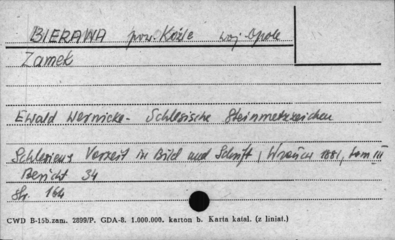 BIERAWA pow. Koźle woj. Opole
Zamek
Ewald Wernicke - Schlesische Steinmetzzeichen
Schlesiens Vorzeit in Bild und Schrift, Wrocław 1881, tom III
Bericht 34
Str. 164
CWD B-15b.zam. 2899/P. GDA-8. 1.000.000. karton b. Karta katal. (z liniat.)